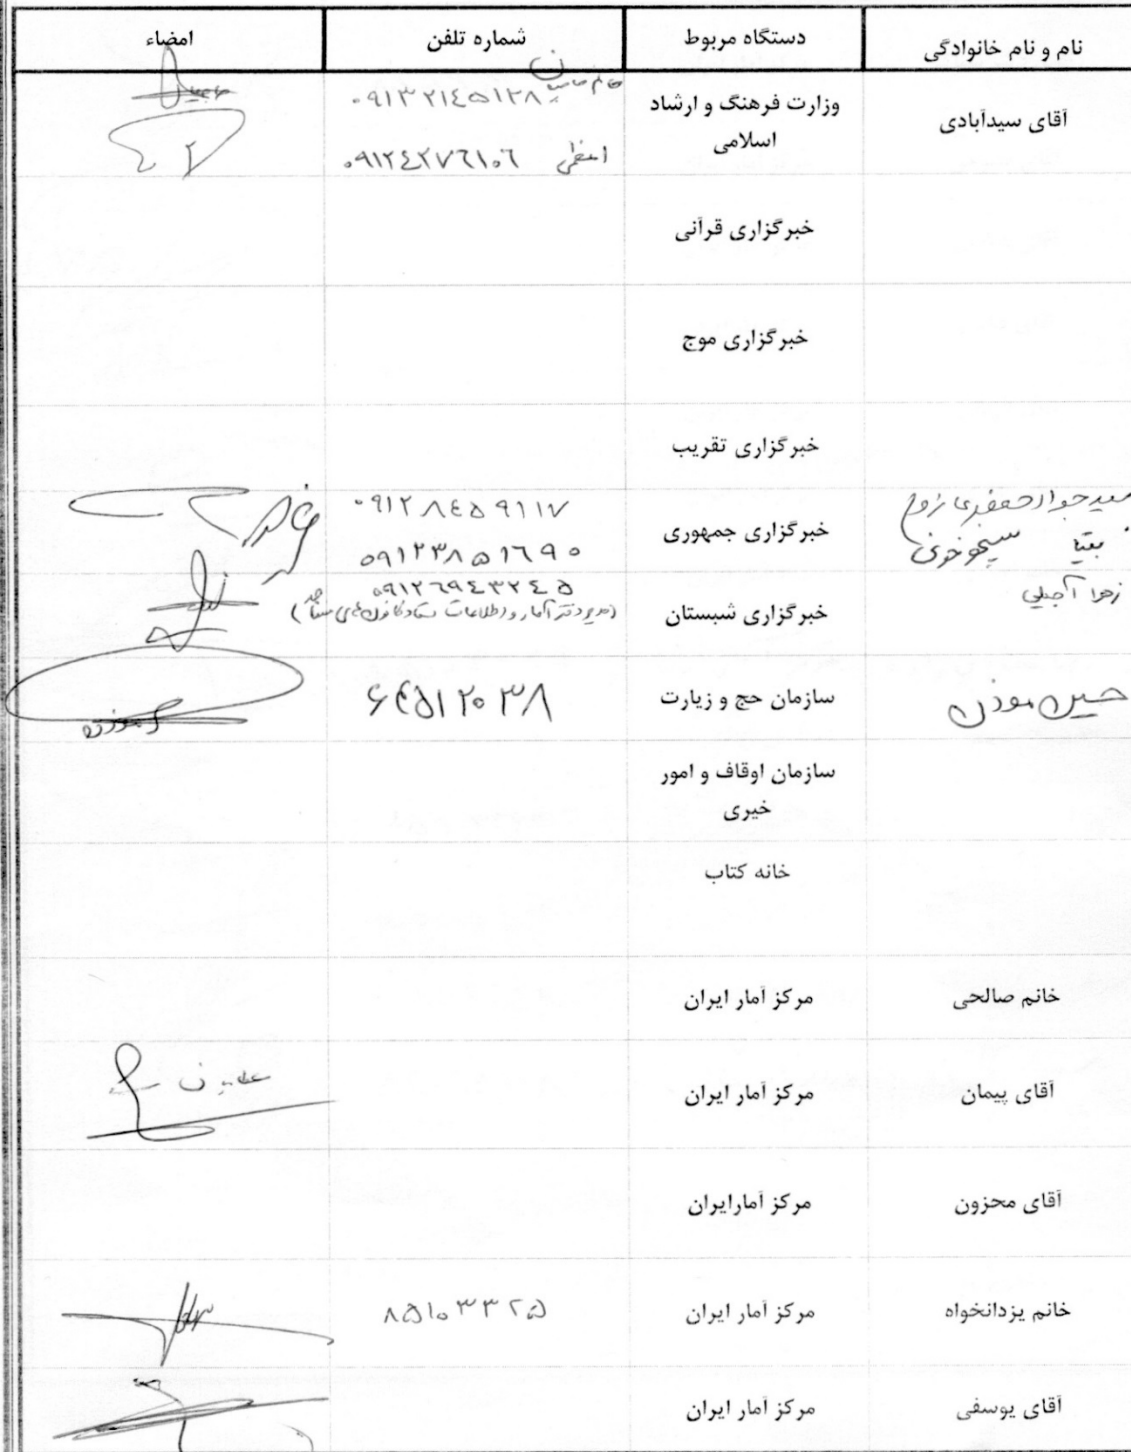 نام و نام خانوادگی
دستگاه مربوط
شماره تلفن
امضاء
آقای سیدآبادی
وزارت فرهنگ و ارشاد
اسلامی
خانم
۰۹۱۳۲۱۴۵۱۲۸
۰۹۱۲۴۲۷۶۱۰۶
خبرگزاری قرآنی
خبرگزاری موج
خبرگزاری تقریب
خبرگزاری جمهوری
۰۹۱۲۸۴۵۹۱۱۷
۰۹۱۲۳۸۵۱۶۹۰
زهرا آجیلی
خبرگزاری شبستان
۰۹۱۲۶۹۴۳۲۴۵
(مدیر دفتر آمار و اطلاعات ستاد کانون های مساجد)
حسین موذن
سازمان حج و زیارت
۶۴۵۱۲۰۳۸
سازمان اوقاف و امور
خیری
خانه کتاب
خانم صالحی
مرکز آمار ایران
آقای پیمان
مرکز آمار ایران
آقای محزون
مرکز آمارایران
خانم یزدانخواه
مرکز آمار ایران
۸۵۱۰۳۳۲۵
آقای یوسفی
مرکز آمار ایران